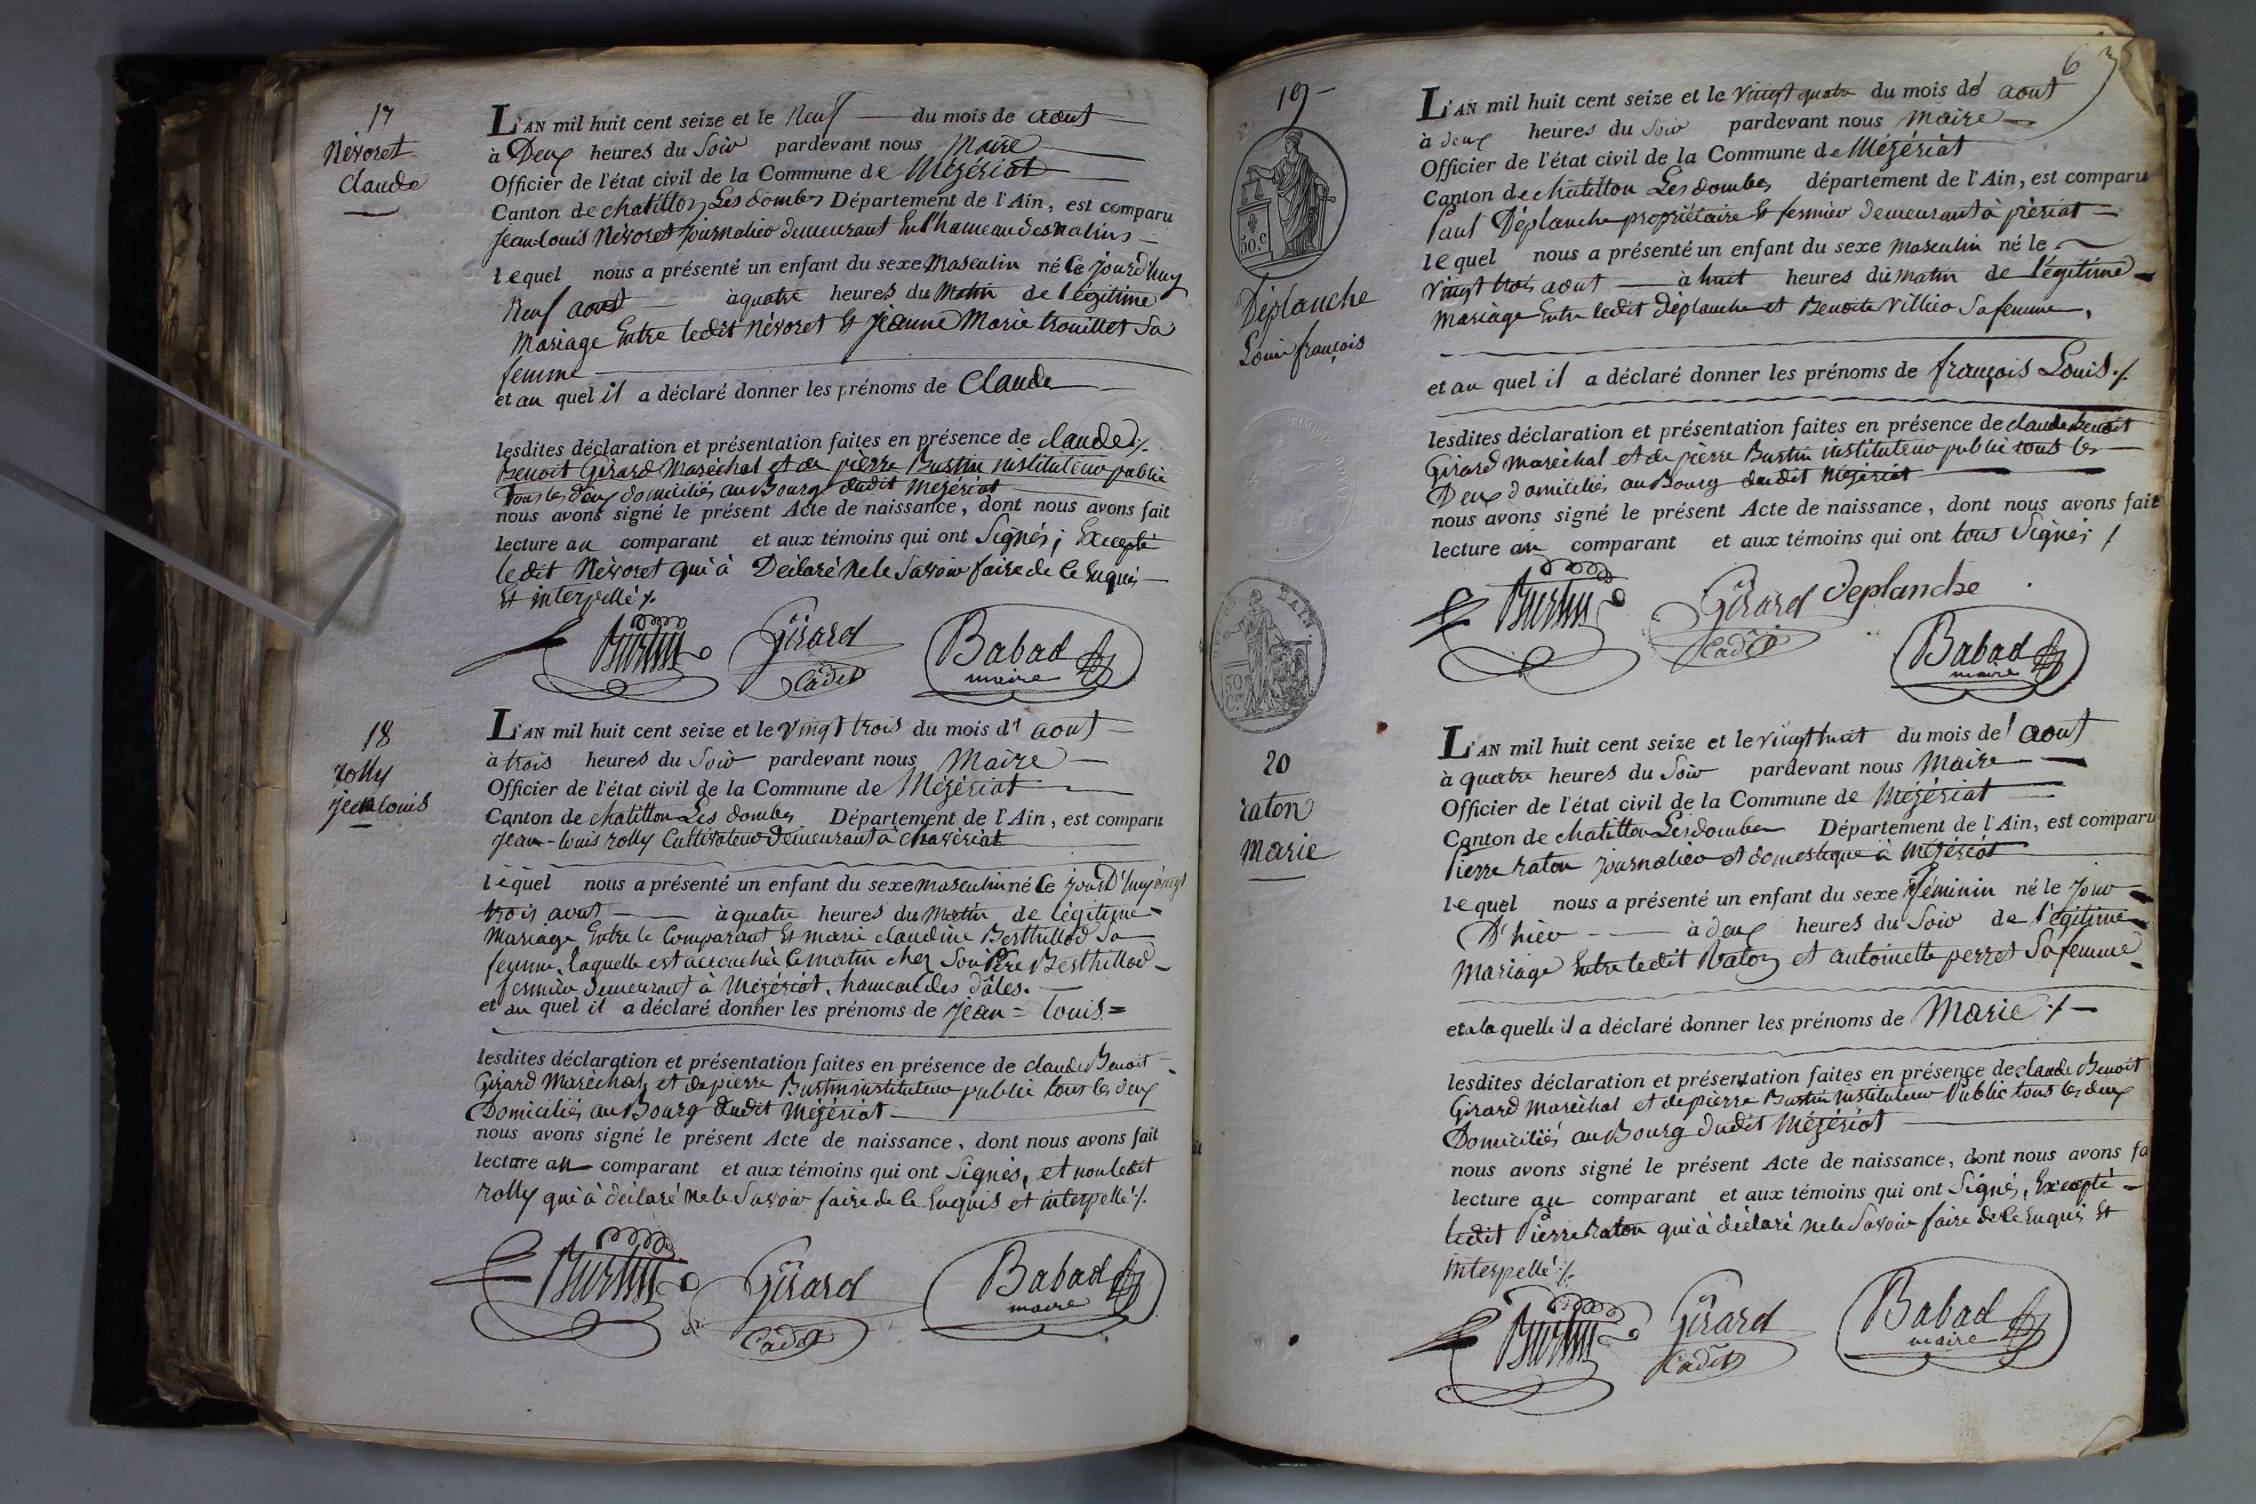 17
Névoret
Claude
L'AN mil huit cent seize et le Neuf du mois de aout
à Deux heures du Soir pardevant nous Maire
Officier de l'état civil de la Commune de Mézériat
Canton de chatillon Les dombes Département de l'Ain, est comparu
Jean louis Névoret journalier demeurant En l'hameau des
lequel nous a présenté un enfant du sexe Masculin né Ce jourd'huy
Neuf aout à quatre heures du Matin de légitime
Mariage Entre ledit Névoret Et Jeanne Marie trouillet Sa
femme
et au quel il a déclaré donner les prénoms de Claude
lesdites déclaration et présentation faites en présence de claude ./.
Benoit Girard Maréchal et de pierre Burtin instituteur public
Tous les deux domiciliés au Bourg dudit Mézériat
nous avons signé le présent Acte de naissance, dont nous avons fait
lecture au comparant et aux témoins qui ont Signés ; Excepté
ledit Névoret qui à Déclaré Ne le Savoir faire de Ce Enquis
Et interpellé ./.
Burtin Girard Babad
Cadet maire
18
rolly
jean louis
L'AN mil huit cent seize et le vingt trois du mois d' aout
à trois heures du Soir pardevant nous Maire
Officier de l'état civil de la Commune de Mézériat
Canton de chatillon Les dombes Département de l'Ain, est comparu
Jean-louis rolly Cultivateur Demeurant à chavériat
lequel nous a présenté un enfant du sexe masculin né Ce jourd'huy vingt
trois aout à quatre heures du Matin de légitime
Mariage Entre le Comparant Et marie claudine Berthillod Sa
femme, laquelle est accouchée Ce matin chez Son Père Berthillod
fermier demeurant à Mézériat, hameau des
et au quel il a déclaré donner les prénoms de jean = louis =
lesdites déclaration et présentation faites en présence de claude Benoit
Girard Maréchal et de pierre Burtin instituteur public tous les deux
Domiciliés au Bourg dudit Mézériat
nous avons signé le présent Acte de naissance, dont nous avons fait
lecture au comparant et aux témoins qui ont Signés, et non ledit
rolly qui à déclaré ne le Savoir faire de Ce Enquis et interpellé ./.
Burtin Girard Babad
Cadet maire
63
19
50.c
Déplanche
Louis françois
L'AN mil huit cent seize et le vingt quatre du mois de aout
à deux heures du Soir pardevant nous Maire
Officier de l'état civil de la Commune de Mézériat
Canton de châtillon Les dombes département de l'Ain, est comparu
Paul Déplanche propriétaire Et fermier demeurant à
lequel nous a présenté un enfant du sexe masculin né le
vingt trois aout à huit heures du matin de légitime
Mariage Entre ledit déplanche et Benoite Villier Sa femme,
et au quel il a déclaré donner les prénoms de françois Louis ./.
lesdites déclaration et présentation faites en présence de claude Benoit
Girard Maréchal et de pierre Burtin instituteur public tous les
Deux domiciliés au Bourg dudit Mézériat
nous avons signé le présent Acte de naissance, dont nous avons fait
lecture au comparant et aux témoins qui ont tous Signés ;
Burtin Girard Deplanche
Cadet Babad
maire
20
raton
Marie
L'AN mil huit cent seize et le vingt huit du mois de aout
à quatre heures du Soir pardevant nous Maire
Officier de l'état civil de la Commune de Mézériat
Canton de chatillon Les dombes Département de l'Ain, est comparu
Pierre raton journalier et domestique à Mézériat
lequel nous a présenté un enfant du sexe féminin né le jour
D'hier à deux heures du Soir de légitime
Mariage Entre ledit Raton et antoinette perret Sa femme
et a la quelle il a déclaré donner les prénoms de Marie ./.
lesdites déclaration et présentation faites en présence de claude Benoit
Girard Maréchal et de pierre Burtin instituteur Public tous les deux
Domiciliés au Bourg dudit Mézériat
nous avons signé le présent Acte de naissance, dont nous avons fa
lecture au comparant et aux témoins qui ont Signés, Excepté
ledit Pierre Raton qui à déclaré ne le Savoir faire de Ce Enquis Et
interpellé ./.
Burtin Girard Babad
Cadet maire